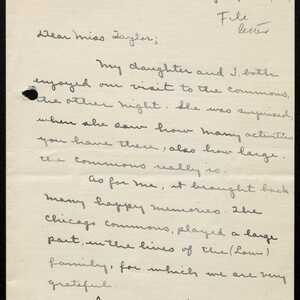 File
letter
Dear Miss Taylor;
My daughter and I both
enjoyed our visit to the commons,
the other night. She was surprised
when she saw how many activities
you have there, also how large
the commons really is.
As for me, it brought back
many happy memories. The
Chicago commons, played a large
part, in the lives of the (Low)
family, for which we are very
grateful.